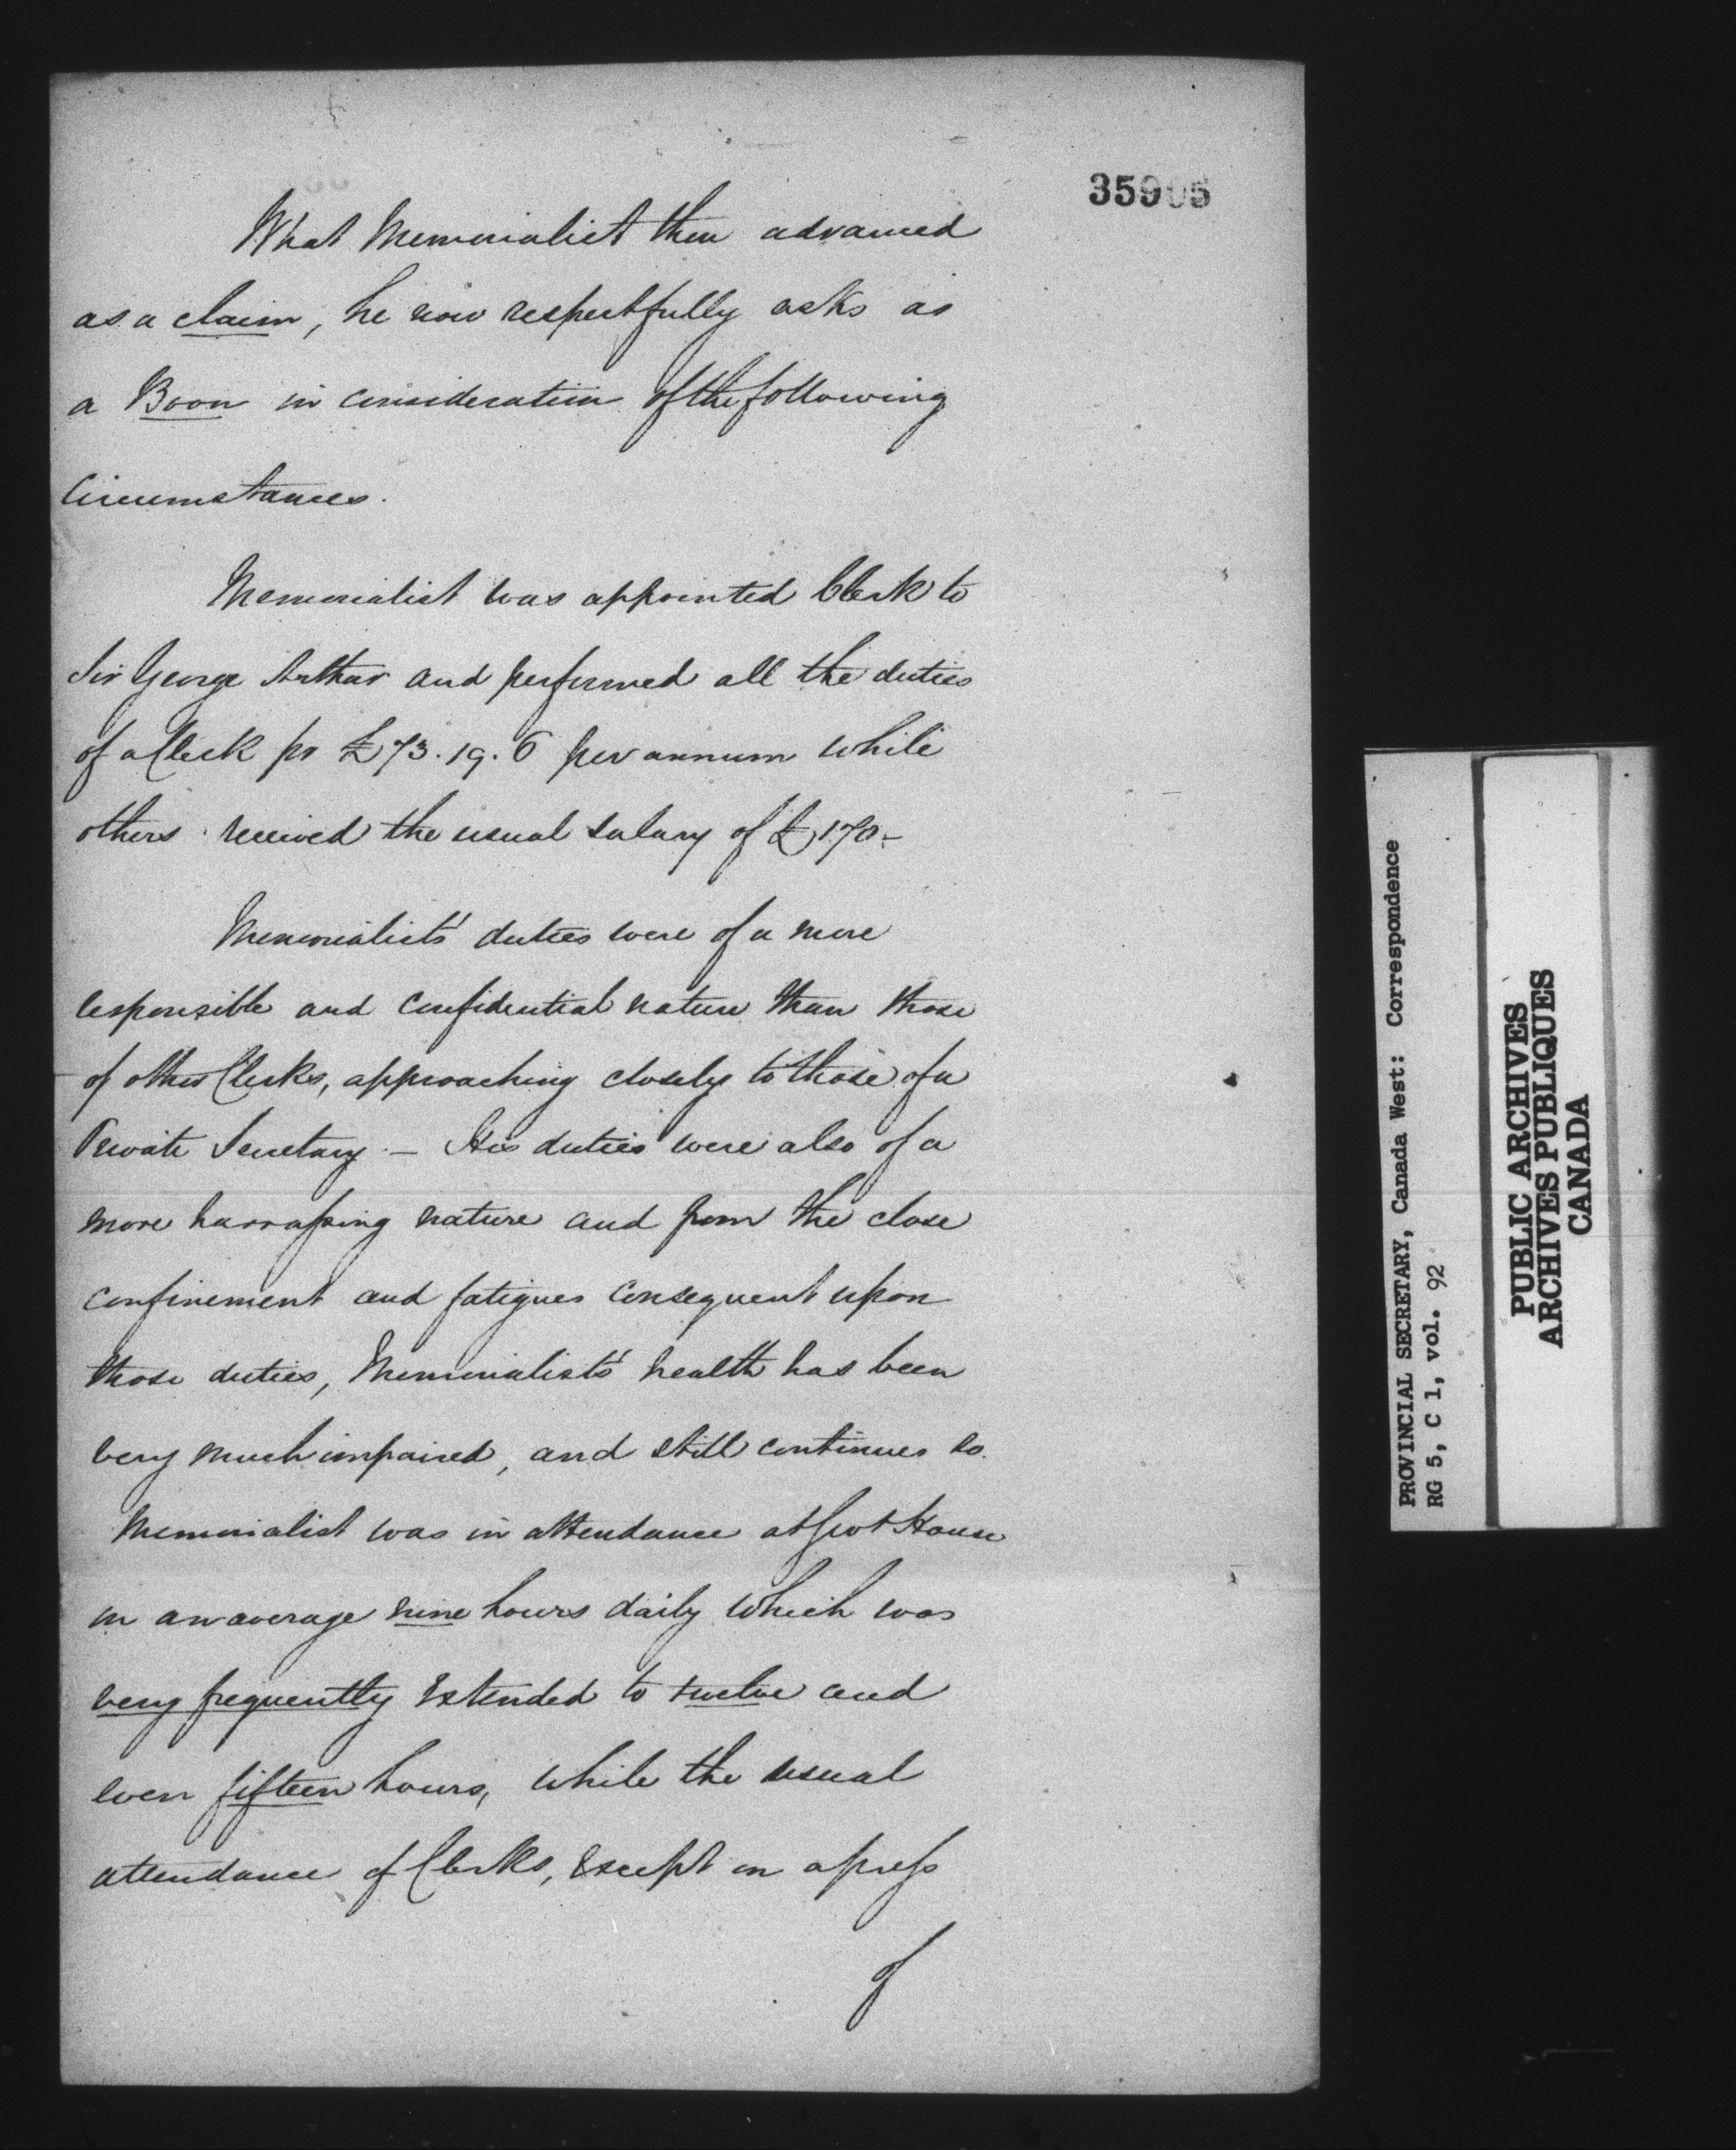 35905
What Memorialist then advanced
as a claim, he now respectfully asks as
a Boon in consideration of the following
Circumstances.
Memorialist was appointed Clerk to
Sir George Arthur and performed all the duties
of a Clerk for £73.19.6 per annum while
others received the usual salary of £170.-
Memorialist's duties were of a more
responsible and confidential nature than those
of other Clerks, approaching closely to those of a
Private Secretary. — His duties were also of a
more harrassing nature and from the close
confinement and fatigues consequent upon
those duties, Memorialist's health has been
very much impaired, and still continues so.
Memorialist was in attendance at Govt House
on an average nine hours daily which was
very frequently extended to twelve and
even fifteen hours, while the usual
attendance of Clerks, except on a press
of
PROVINCIAL SECRETARY, Canada West: Correspondence
RG 5, C 1, vol. 92
PUBLIC ARCHIVES
ARCHIVES PUBLIQUES
CANADA